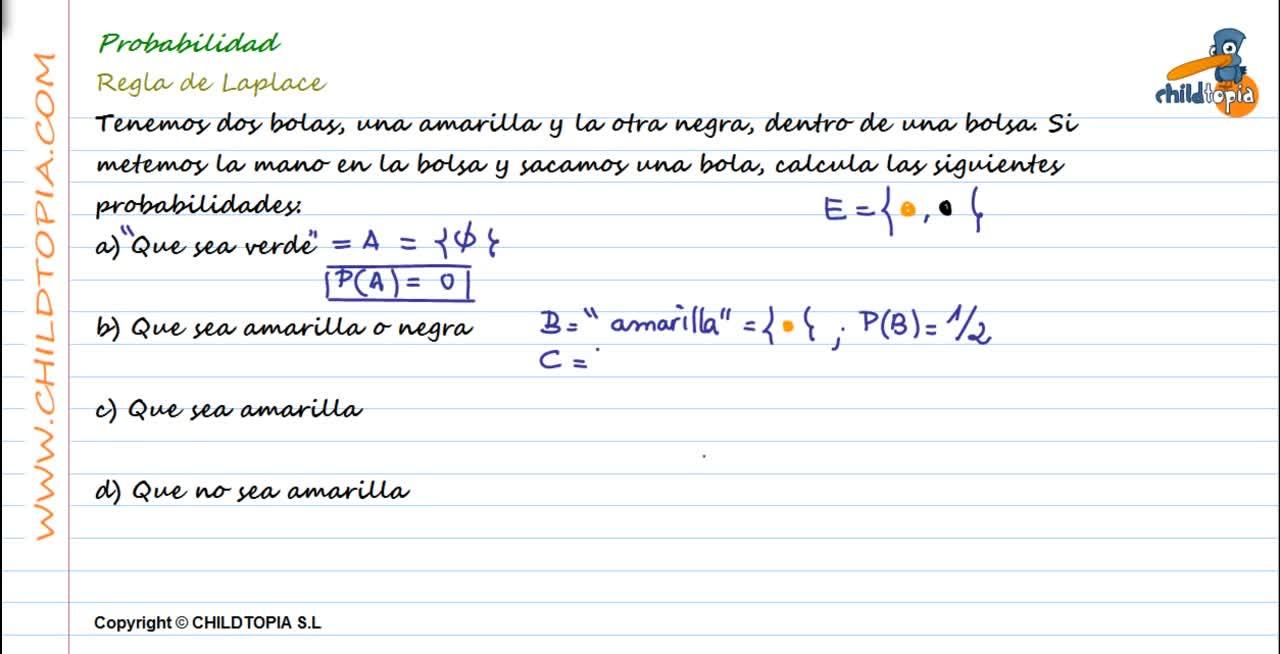 Probabilidad
Regla de Laplace
childtopia
WWW.CHILDTOPIA.COM
Tenemos dos bolas, una amarilla y la otra negra, dentro de una bolsa. Si
metemos la mano en la bolsa y sacamos una bola, calcula las siguientes
probabilidades:
E = { , }
a) "Que sea verde" = A = {ϕ}
P(A) = 0
b) Que sea amarilla o negra B = "amarilla" = { } ; P(B) = 1/2
C =
c) Que sea amarilla
d) Que no sea amarilla
Copyright © CHILDTOPIA S.L